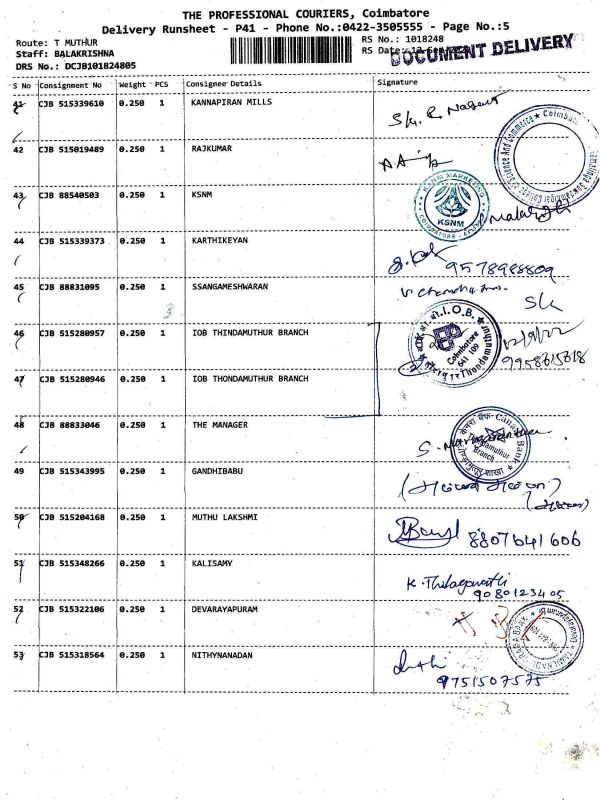 THE PROFESSIONAL COURIERS, Coimbatore
Delivery Runsheet - P41 - Phone No.:0422-3505555 - Page No.:5
Route: T MUTHUR
Staff: BALAKRISHNA
DRS No.: DCJB101824805
RS No.: 1018248
RS Date:
DOCUMENT DELIVERY
S No Consignment No Weight PCS Consignee Details Signature
41 CJB 515339610 0.250 1 KANNAPIRAN MILLS
42 CJB 515019489 0.250 1 RAJKUMAR
43 CJB 88540503 0.250 1 KSNM
KSNM MARKETING
KSNM
COIMBATORE
44 CJB 515339373 0.250 1 KARTHIKEYAN
9578988809
45 CJB 88831095 0.250 1 SSANGAMESHWARAN
46 CJB 515280957 0.250 1 IOB THINDAMUTHUR BRANCH
I.O.B.
Coimbatore
641 109
12/9/22
9958615618
47 CJB 515280946 0.250 1 IOB THONDAMUTHUR BRANCH
48 CJB 88833046 0.250 1 THE MANAGER
Branch
49 CJB 515343995 0.250 1 GANDHIBABU
50 CJB 515204168 0.250 1 MUTHU LAKSHMI
8807641606
51 CJB 515348266 0.250 1 KALISAMY
K. Thilagavathi
9080123405
52 CJB 515322106 0.250 1 DEVARAYAPURAM
53 CJB 515318564 0.250 1 NITHYNANADAN
9751507575